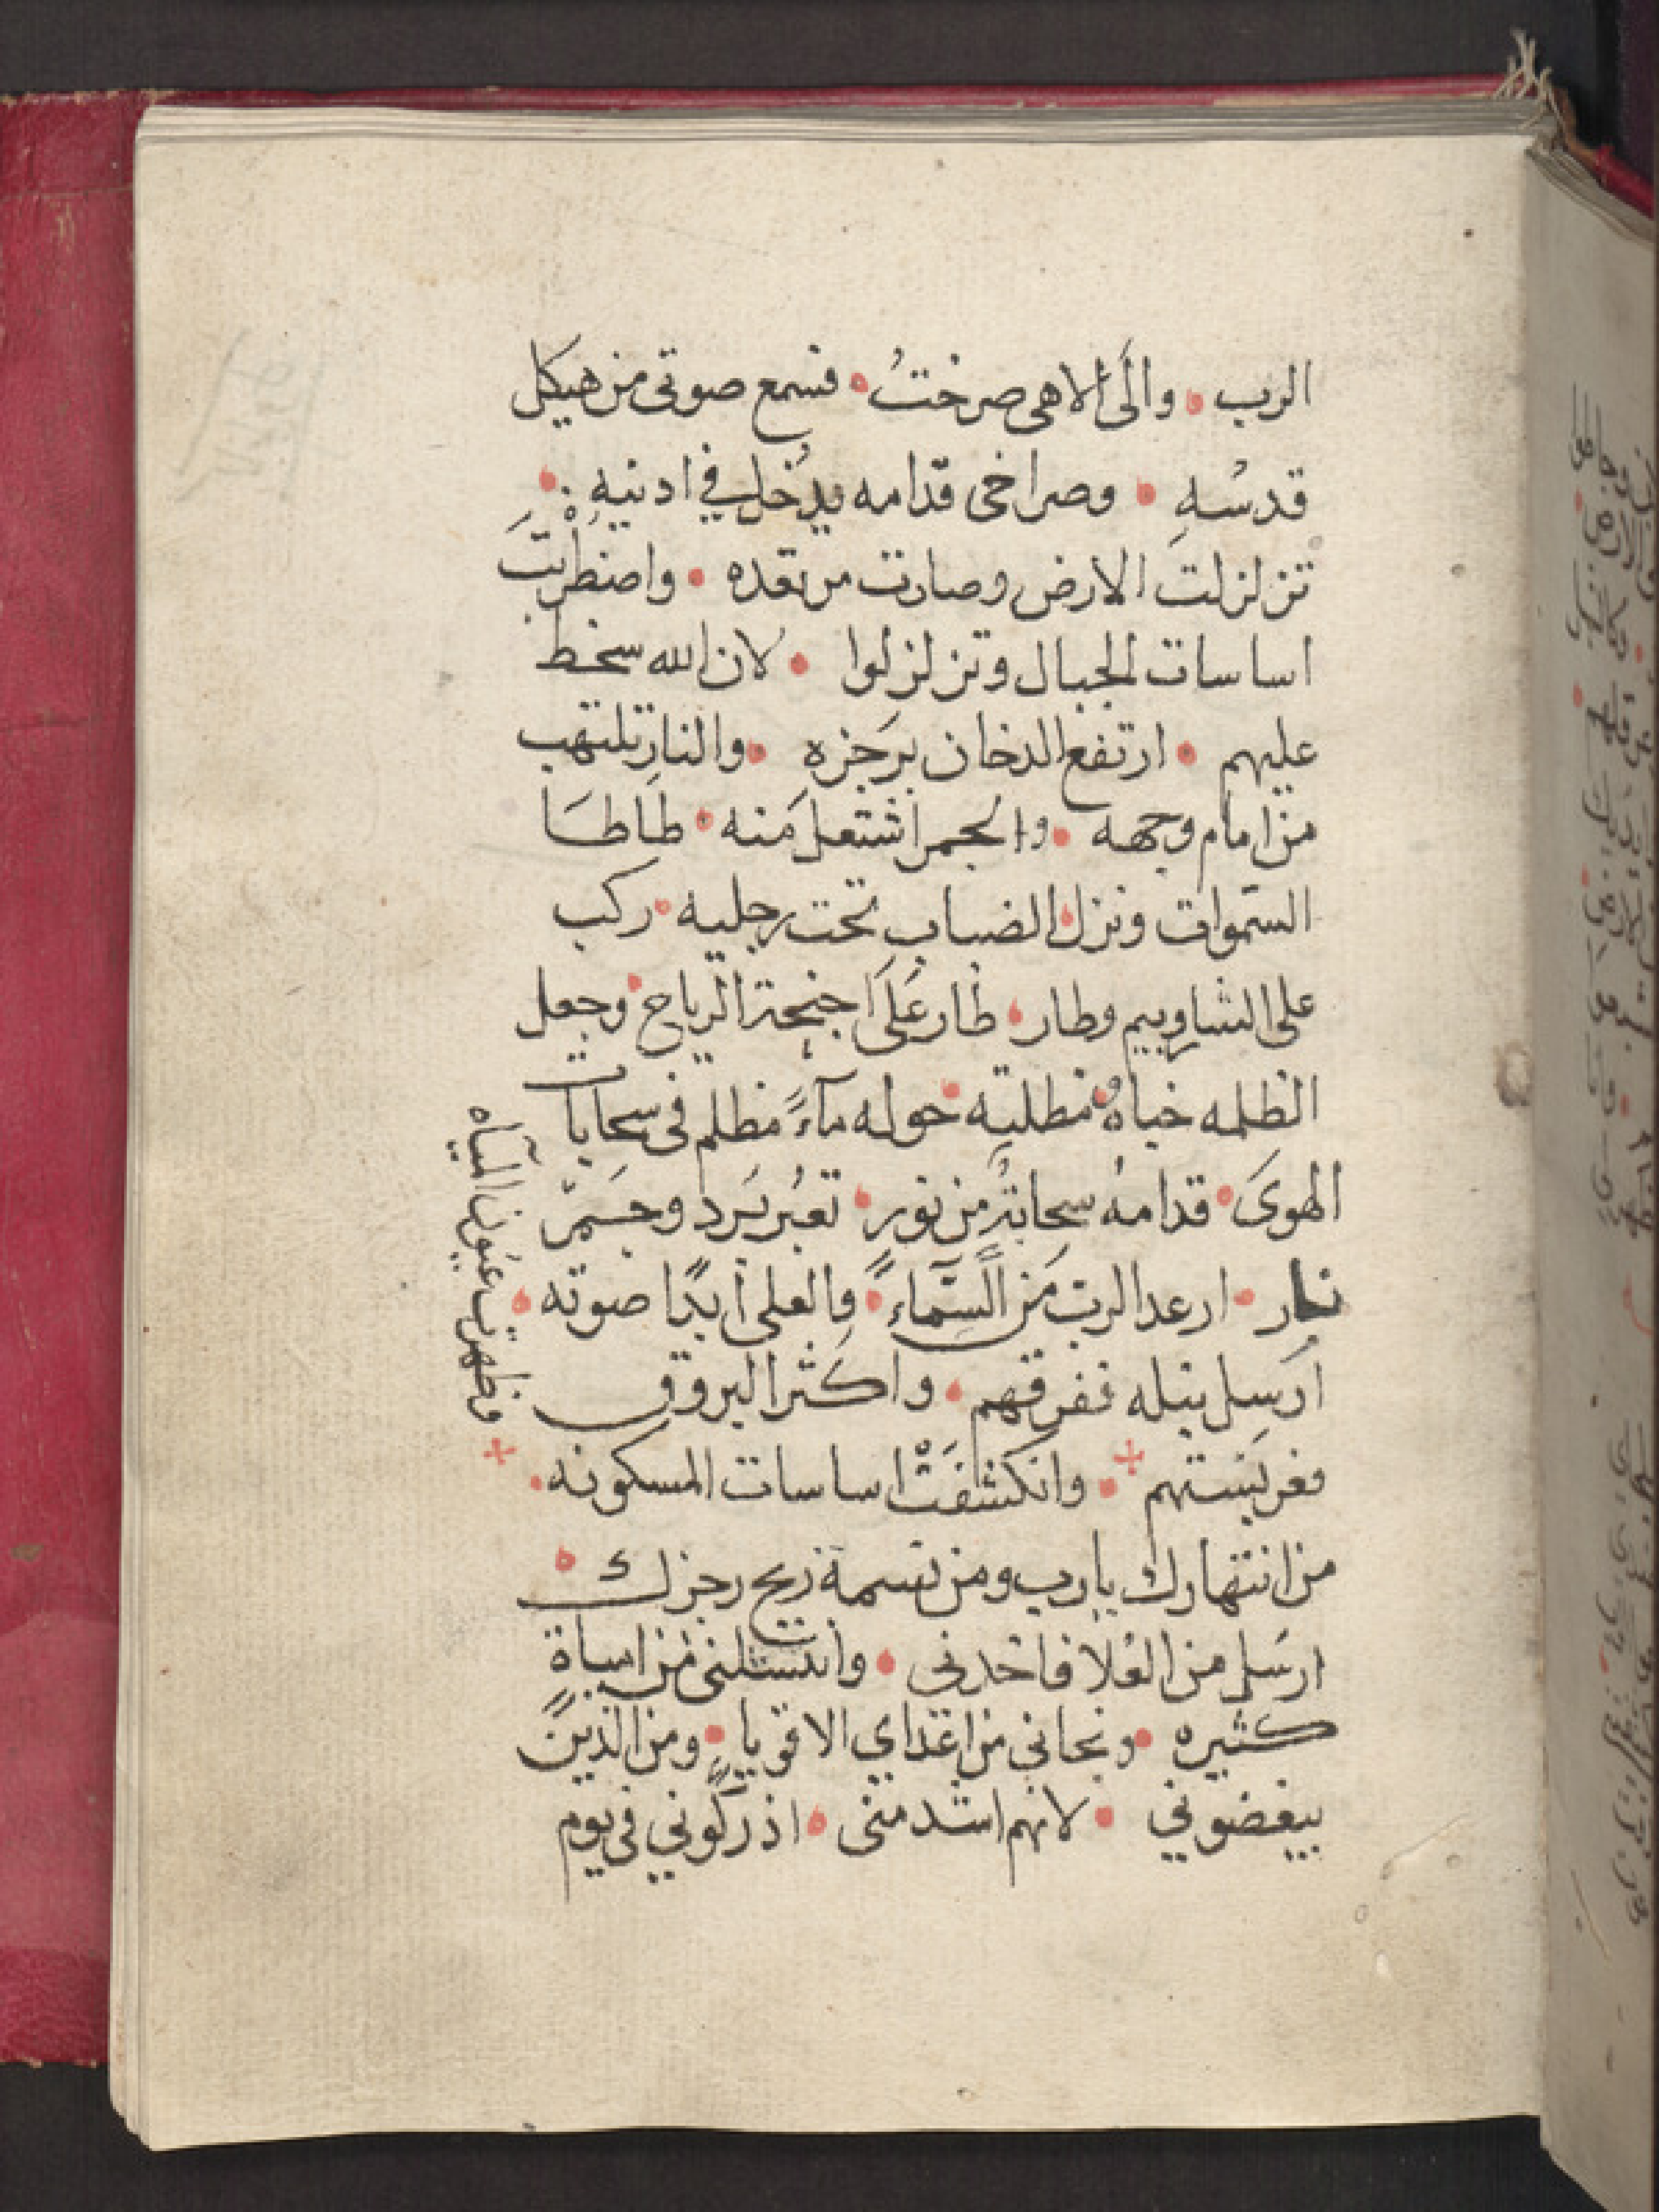 الرب • والَى الاهى صرختُ • فسمع صوتى من هيكل
قدسُهِ • وصراخى قدامه يدُخل في ادنيهِ •
تزلزلت الارض وصارت مرتعده • واضطربَت
اساسات الجبال وتزلزلوا • لان الله سخط
عليهم • ارتفع الدخان برَجزهِ • والنار تلتهب
من امام وجهه • والجمر اشتعل منه • طَاطَا
السَموات ونزل • الضباب تحت رجليه • ركب
على الشاروبيم وطار • طار علَى اجنحة الرياح • وجعل
الظلمه خباهُ • ومظلته • حوله مآءً مظلم فى سحابات
الهوىَ • قدامهُ سحابةُ من نور • تعبُر بَرد وجَمرّ
نار • ارعد الرب من السَمآءً • والعلى ابدًا صوته •
ارسل نبله ففرقهم • واكَثر البروق
وظهرت عيون المياه
فغربَنستهم • وانكشفَتْ اساسات المسكونه •
من انتهارك يا رب ومن نسمة ريح رجزك •
ارسَل من العُلا فاخدنى • وانتشلنى من امياةٍ
كثيره • ونجانى من اعداي الاقويا • ومن الذينً
يبغضوني • لانهم اشد منى • ادركوني فى يوم